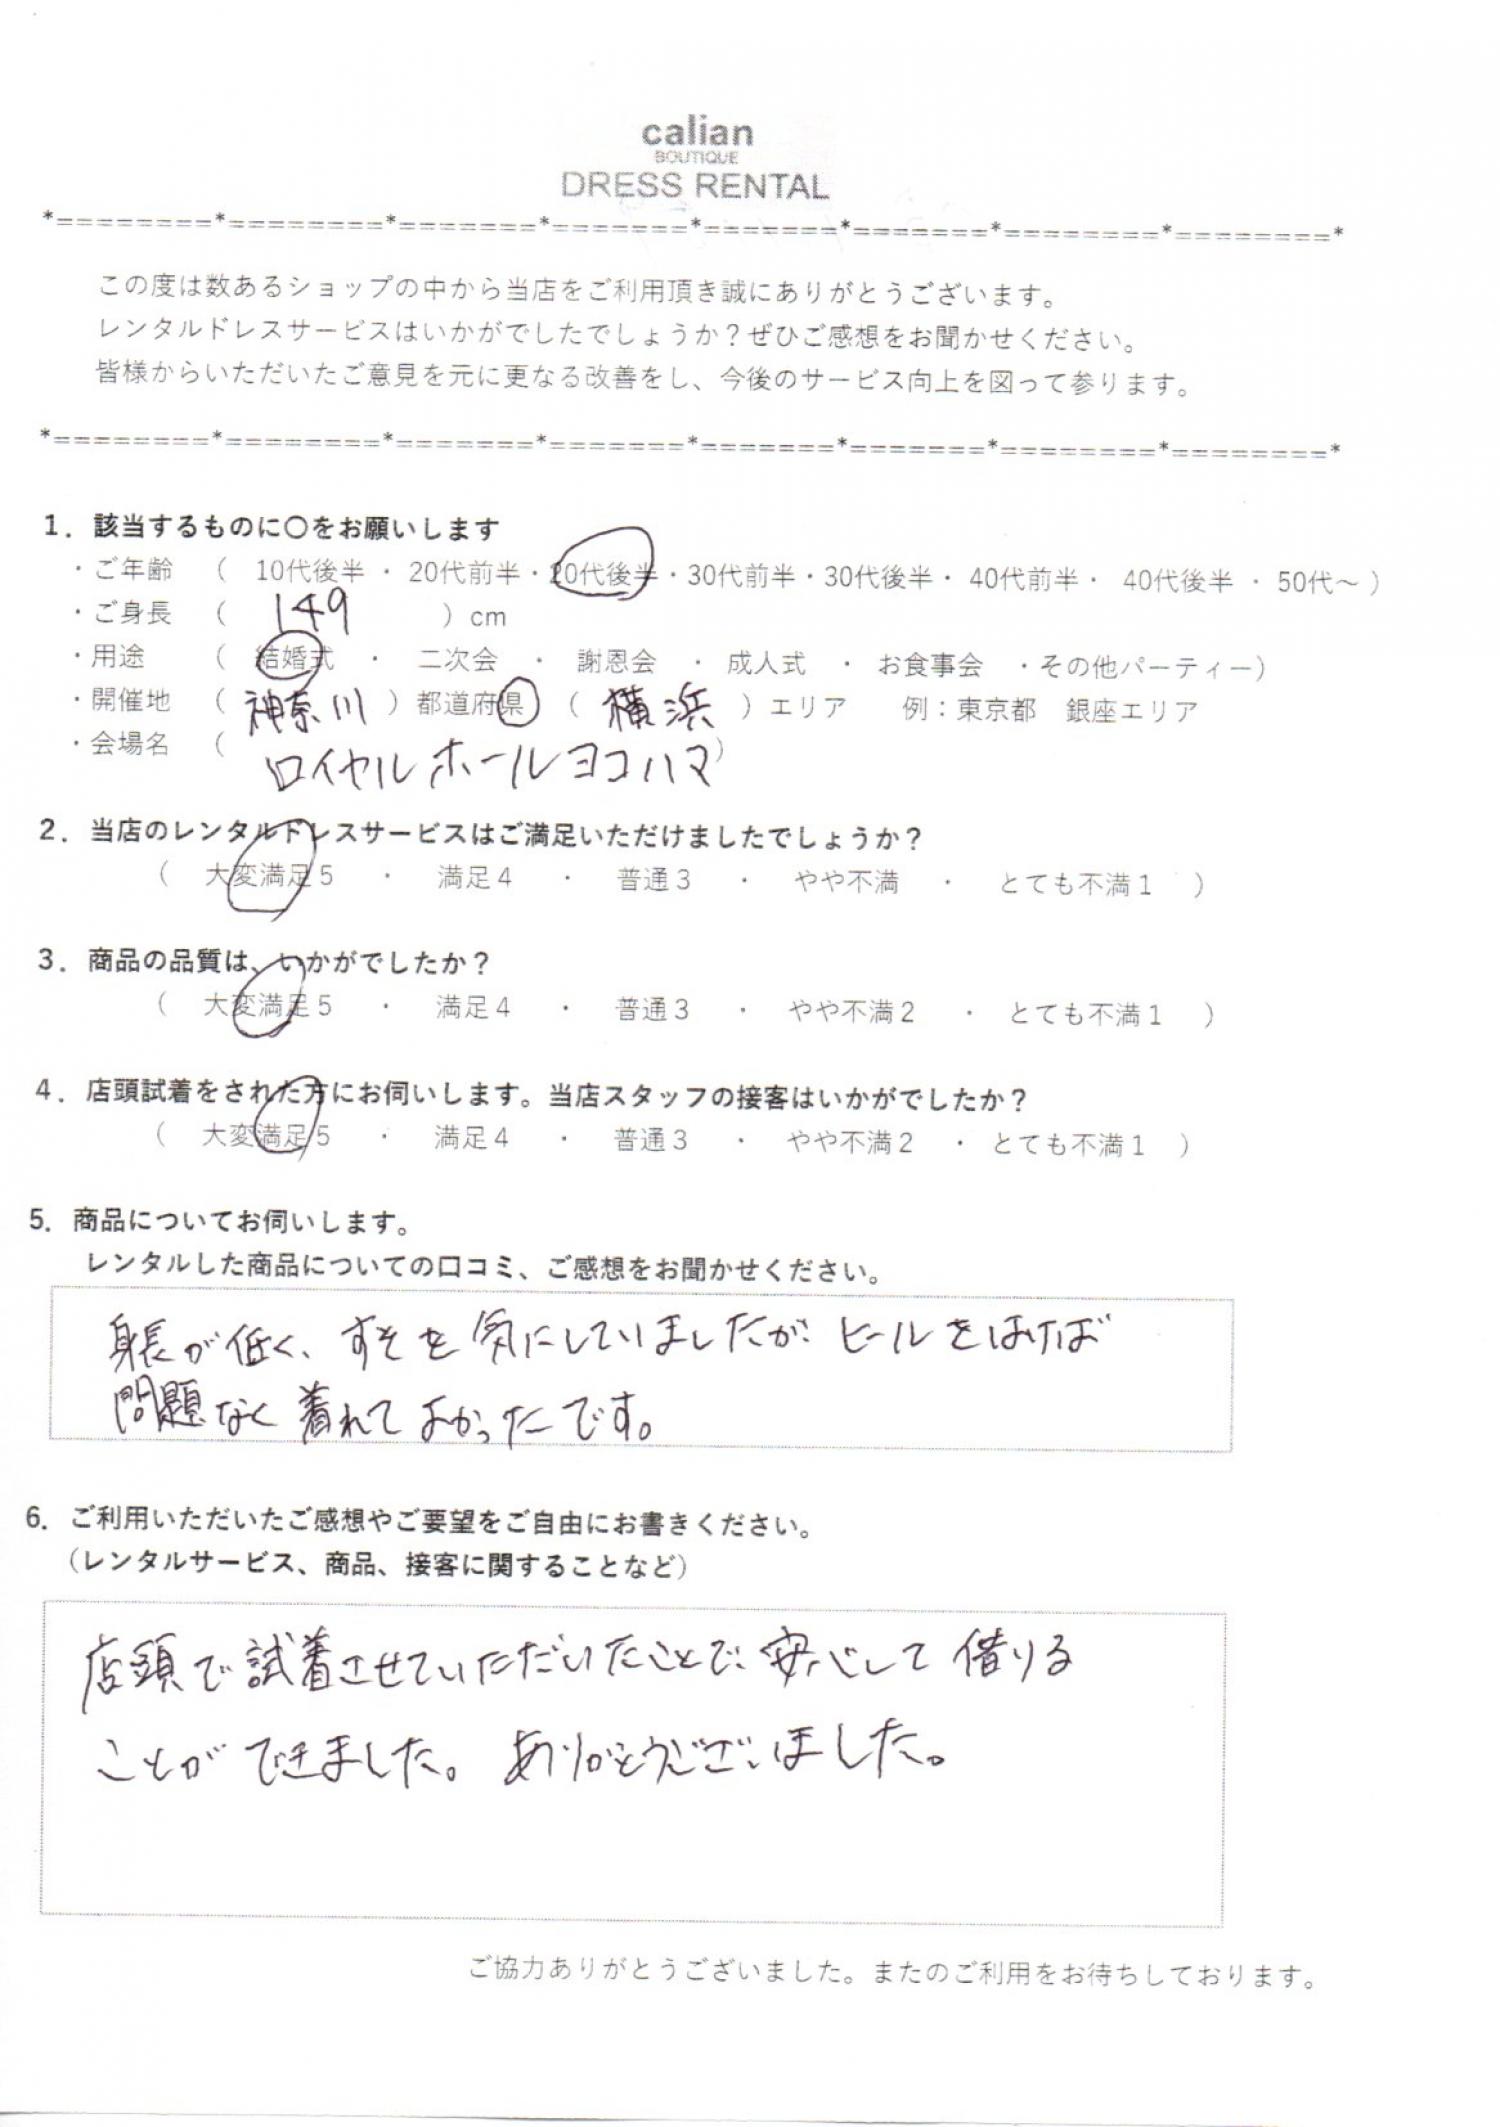 calian
BOUTIQUE
DRESS RENTAL
*========*========*=======*=======*=======*=======*========*========*
この度は数あるショップの中から当店をご利用頂き誠にありがとうございます。
レンタルドレスサービスはいかがでしたでしょうか？ぜひご感想をお聞かせください。
皆様からいただいたご意見を元に更なる改善をし、今後のサービス向上を図って参ります。
*========*========*=======*=======*=======*=======*========*========*
1．該当するものに〇をお願いします
・ご年齢 （ 10代後半 ・ 20代前半・20代後半・30代前半・30代後半・ 40代前半・ 40代後半 ・ 50代～ ）
・ご身長 （ 149 ）cm
・用途 （ 結婚式 ・ 二次会 ・ 謝恩会 ・ 成人式 ・ お食事会 ・その他パーティー）
・開催地 （ 神奈川 ）都道府県 （ 横浜 ）エリア 例：東京都 銀座エリア
・会場名 （ ロイヤルホールヨコハマ ）
2．当店のレンタルドレスサービスはご満足いただけましたでしょうか？
（ 大変満足５ ・ 満足４ ・ 普通３ ・ やや不満 ・ とても不満１ ）
3．商品の品質は、いかがでしたか？
（ 大変満足５ ・ 満足４ ・ 普通３ ・ やや不満２ ・ とても不満１ ）
4．店頭試着をされた方にお伺いします。当店スタッフの接客はいかがでしたか？
（ 大変満足５ ・ 満足４ ・ 普通３ ・ やや不満２ ・ とても不満１ ）
5．商品についてお伺いします。
レンタルした商品についての口コミ、ご感想をお聞かせください。
身長が低く、すそを気にしていましたが ヒールをはけば
問題なく着れてよかったです。
6．ご利用いただいたご感想やご要望をご自由にお書きください。
（レンタルサービス、商品、接客に関することなど）
店頭で試着させていただいたことで、安心して借りる
ことができました。ありがとうございました。
ご協力ありがとうございました。またのご利用をお待ちしております。